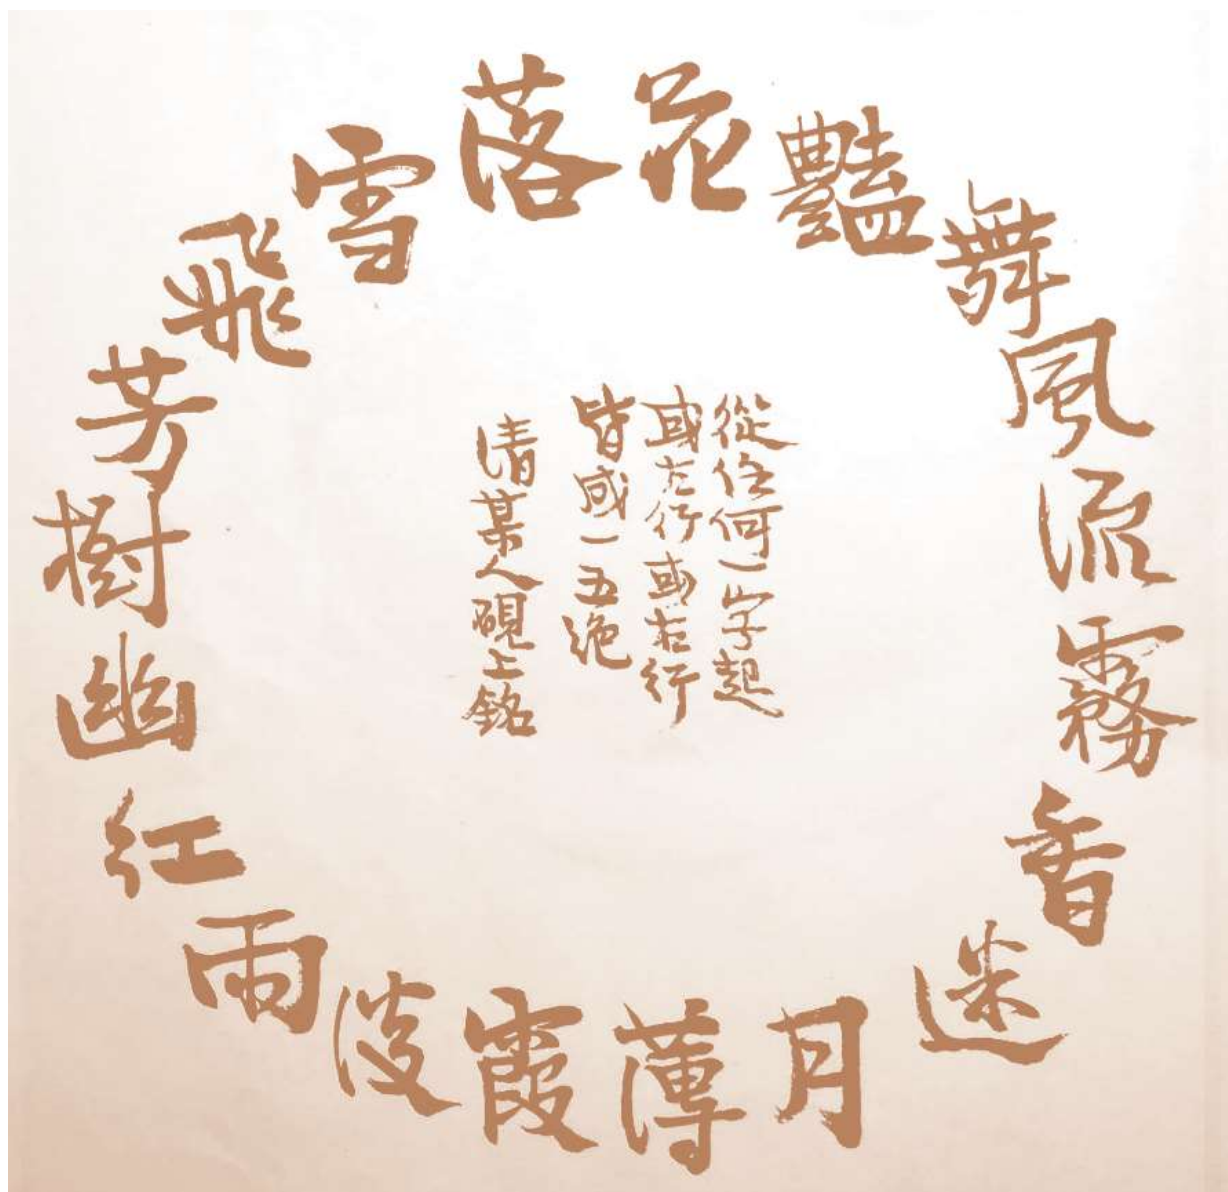 落花豔舞風流霧香迷月薄霞淡雨紅幽樹芳飛雪
從任何一字起
或左行或右行
皆成一五絕
清某人硯上銘